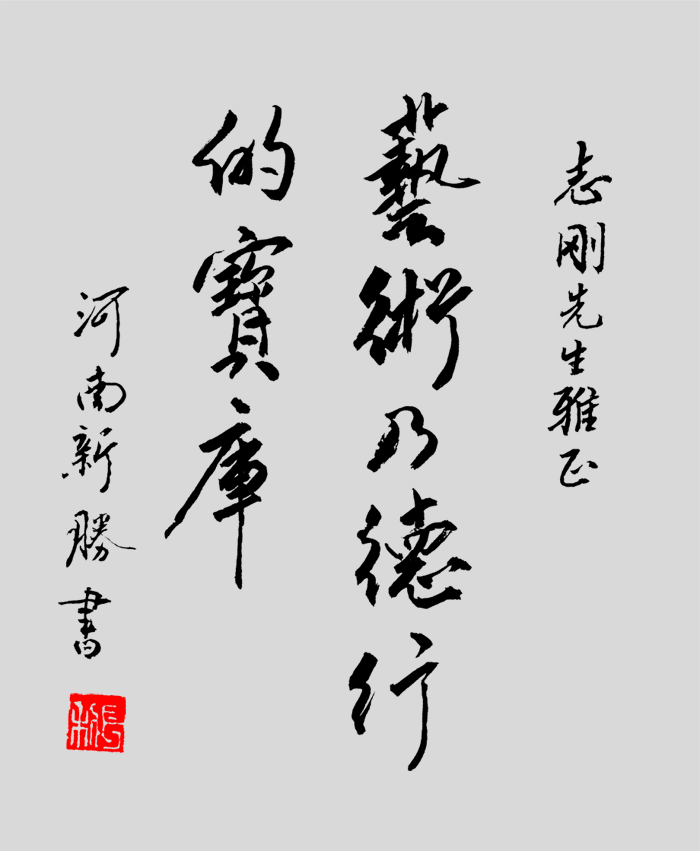 志刚先生雅正
藝術乃德行
的寶庫
河南新勝書